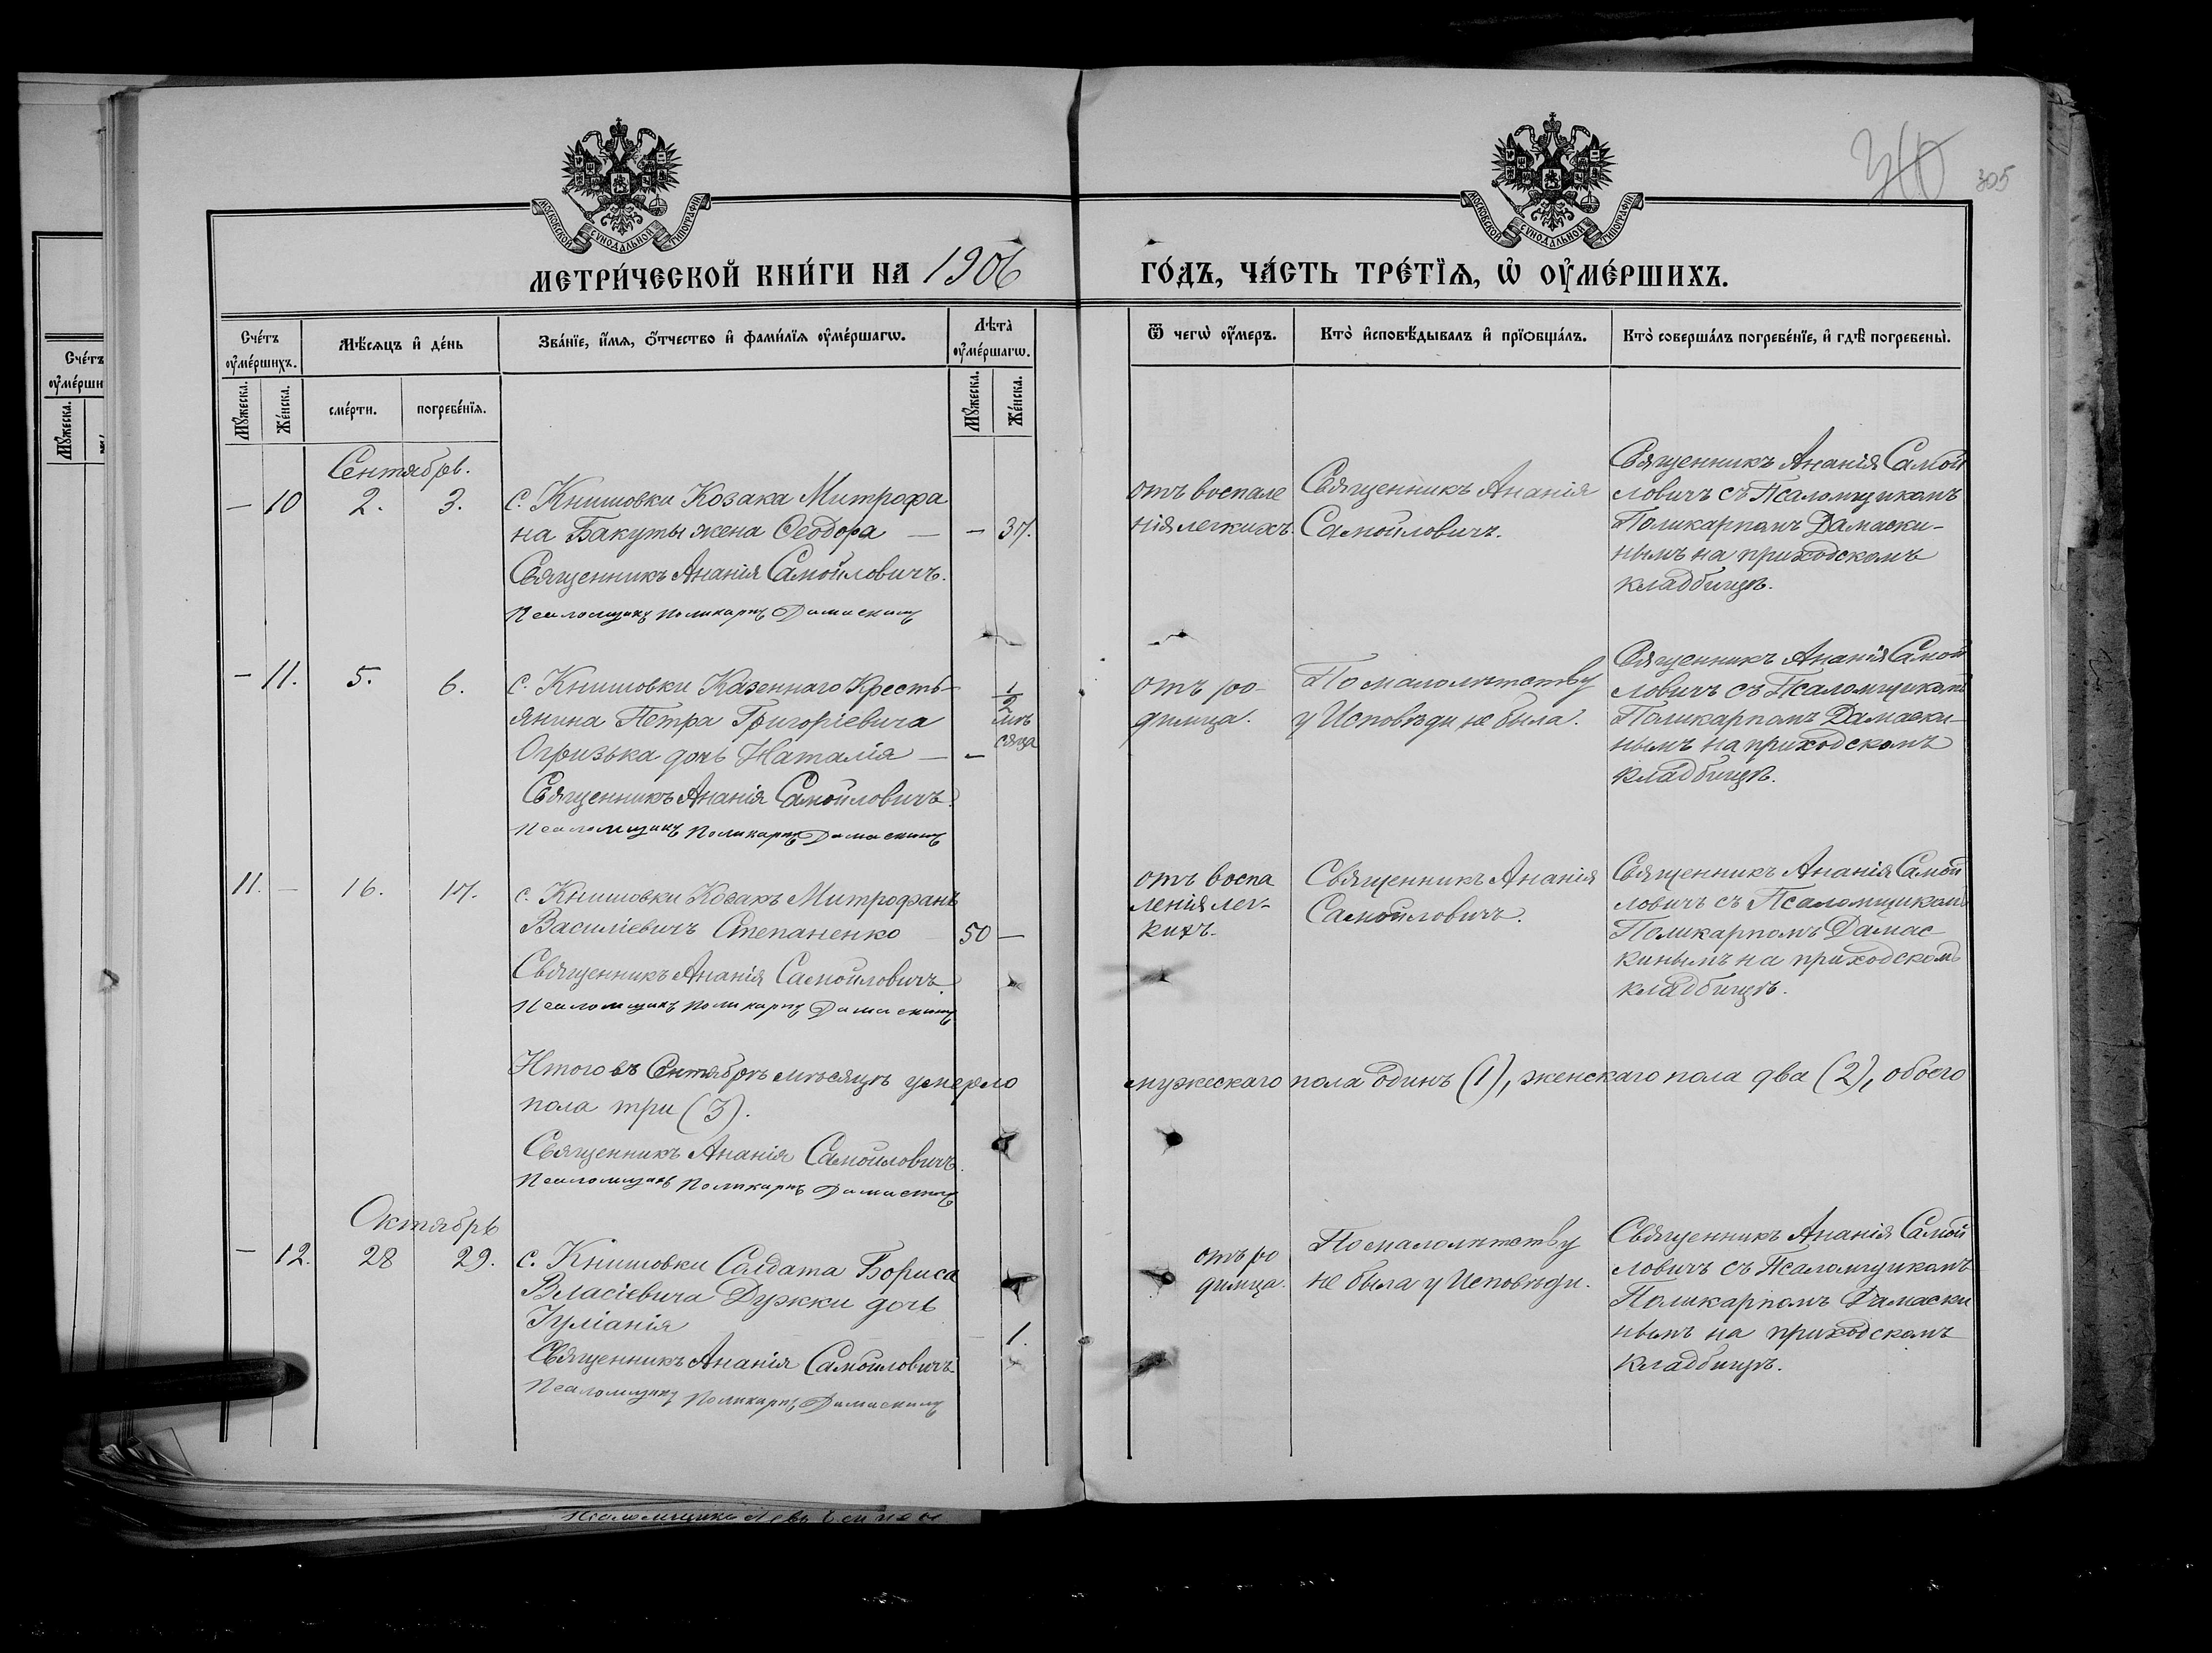 310 305
МОСКОВСКОЙ СУНОДАЛЬНОЙ ТИПОГРАФІИ
МОСКОВСКОЙ СУНОДАЛЬНОЙ ТИПОГРАФІИ
МЕТРИ́ЧЕСКОЙ КНИ́ГИ НА 1906 ГО́ДЪ, ЧА́СТЬ ТРЕ́ТЇѦ, Ѡ҆ ОУ҆МЕ́РШИХЪ.
Сче́тъ оу҆ме́ршихъ.
Мꙋ́жеска.
Же́нска.
Мѣ́сѧцъ и҆ де́нь
сме́рти.
погребе́нїѧ.
Зва́нїе, и҆́мѧ, ѻ҆́тчество и҆ фами́лїѧ оу҆ме́ршагѡ.
Лѣ́та̀ оу҆ме́ршагѡ.
Мꙋ́жеска.
Же́нска.
Ѿ чегѡ̀ оу҆́меръ.
Кто̀ и҆сповѣ́дывалъ и҆ прїѻбща́лъ.
Кто̀ соверша́лъ погребе́нїе, и҆ гдѣ̀ погребены̀.
Сентябрь.
— 10 2. 3.
с. Книшовки Козака Митрофа
на Бакуты жена Ѳеодора — — 37.
Священникъ Ананія Самойловичъ.
Псаломщикъ Поликарпъ Дамаскинъ
отъ воспале
нія легкихъ.
Священникъ Ананія
Самойловичъ.
Священникъ Ананія Самой
ловичъ съ Псаломщикомъ
Поликарпомъ Дамаски-
нымъ на приходскомъ
кладбищѣ.
— 11. 5. 6.
с. Книшовки Казеннаго Кресть-
янина Петра Григоріевича
Огризька дочь Наталія — —
1/2 мѣ
сяца
Священникъ Ананія Самойловичъ.
Псаломщикъ Поликарпъ Дамаскинъ
отъ ро-
димца.
По малолѣтству
у Исповѣди не была.
Священникъ Ананія Самой
ловичъ съ Псаломщикомъ
Поликарпомъ Дамаски-
нымъ на приходскомъ
кладбищѣ.
11. — 16. 17.
с. Книшовки Козакъ Митрофанъ
Василіевичъ Степаненко 50 —
Священникъ Ананія Самойловичъ.
Псаломщикъ Поликарпъ Дамаскинъ
отъ воспа
ленія лег-
кихъ.
Священникъ Ананія
Самойловичъ.
Священникъ Ананія Самой
ловичъ съ Псаломщикомъ
Поликарпомъ Дамас
кинымъ на приходскомъ
кладбищѣ.
Итого въ Сентябрѣ мѣсяцѣ умерло мужескаго пола одинъ (1), женскаго пола два (2), обоего
пола три (3).
Священникъ Ананія Самойловичъ.
Псаломщикъ Поликарпъ Дамаскинъ
Октябрь
— 12. 28 29.
с. Книшовки Солдата Бориса
Власіевича Дужки дочь
Іуліанія — 1.
Священникъ Ананія Самойловичъ.
Псаломщикъ Поликарпъ Дамаскинъ
отъ ро
димца.
По малолѣтству
не была у Исповѣди.
Священникъ Ананія Самой
ловичъ съ Псаломщикомъ
Поликарпомъ Дамаски
нымъ на приходскомъ
кладбищѣ.
Псаломщикъ